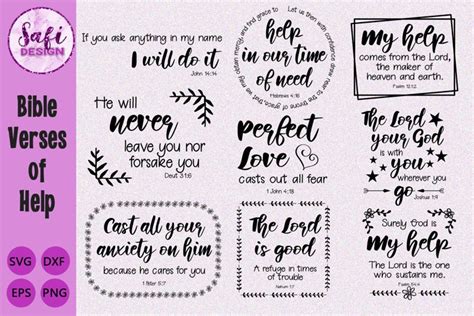 Safi
DESIGN
Bible
Verses
of
Help
SVG
DXF
EPS
PNG
If you ask anything in my name
I will do it
John 14:14
Let us then with confidence draw near to the throne of grace, that we may obtain mercy, and find grace to
help
in our time
of need
Hebrews 4:16
My help
comes from the Lord,
the maker of
heaven and earth.
Psalm
He will
never
leave you nor
forsake you
Deut 31:6
Perfect
Love
casts out all fear
1 John 4:18
The Lord
your God
is with
you
wherever you
go
Joshua 1:9
Cast all your
anxiety on him
because he cares for you
1 Peter 5:7
The Lord
is good
A refuge in times
of trouble
Nahum 1:7
Surely God is
my help
The Lord is the one
who sustains me.
Psalm 54:4